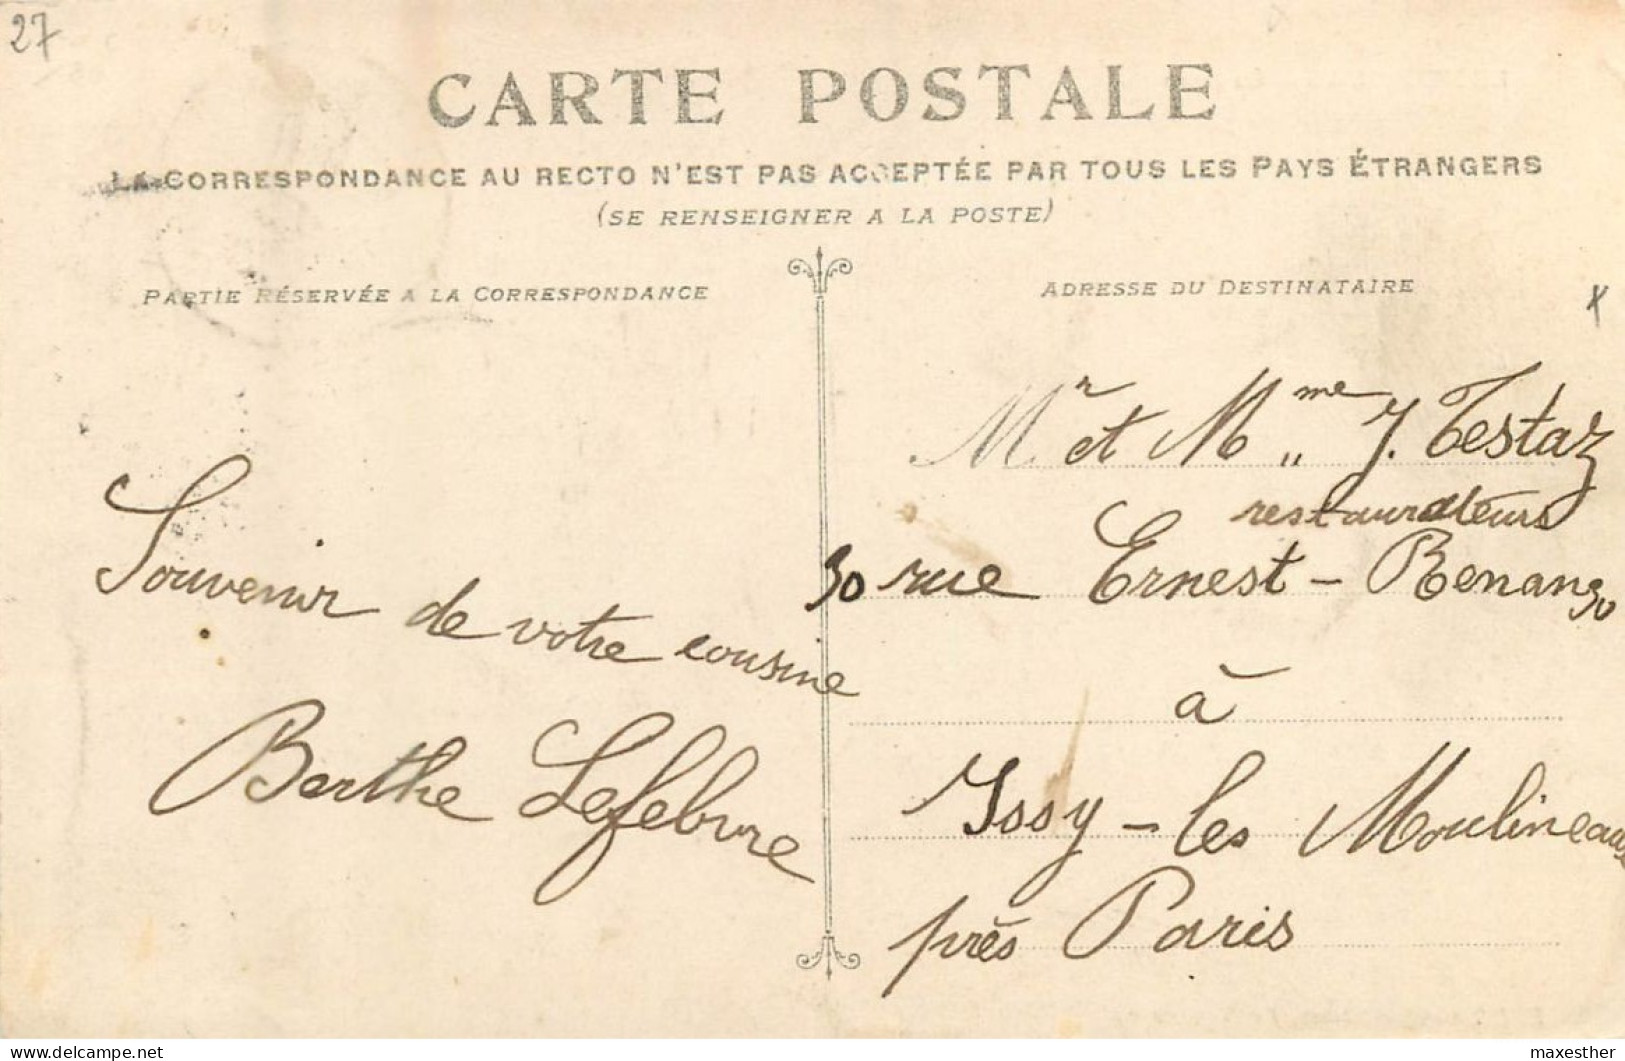 27
CARTE POSTALE
LA CORRESPONDANCE AU RECTO N'EST PAS ACCEPTÉE PAR TOUS LES PAYS ÉTRANGERS
(SE RENSEIGNER A LA POSTE)
PARTIE RÉSERVÉE A LA CORRESPONDANCE
ADRESSE DU DESTINATAIRE
Souvenir de votre cousine
Berthe Lefebvre
Mr et Mme J. Testaz
restaurateurs
30 rue Ernest-Renan 30
à
Issy-les Moulineaux
près Paris
https://www.delcampe.net
maxesther